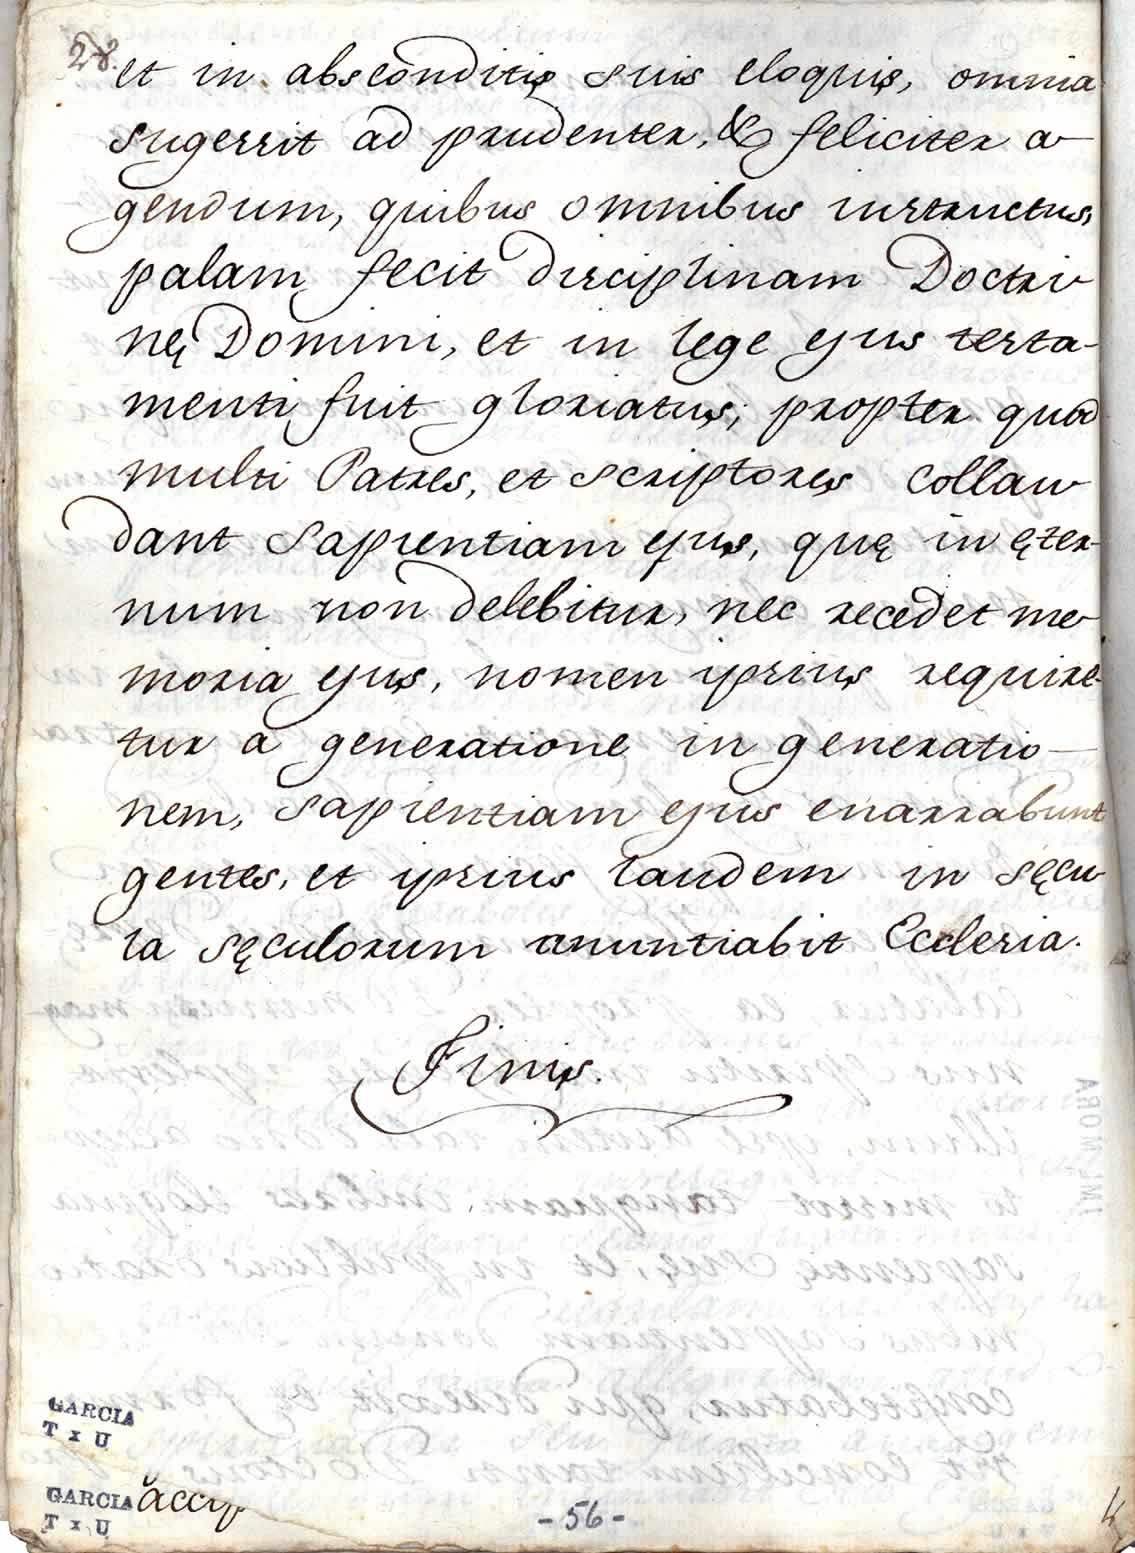 28.
et in absconditis suis eloquis, omnia
sugerrit ad prudenter, & feliciter a
gendum, quibus omnibus instructus,
palam fecit disciplinam Doctri
nę Domini, et in lege ejus testa-
menti fuit gloriatus; propter quod
multi Patres, et scriptores collau
dant sapientiam ejus, quę in ęter-
num non delebitur, nec recedet me
moria ejus, nomen ipsius require-
tur a generatione in generatio-
nem, sapientiam ejus enarrabunt
gentes, et ipsius laudem in sęcu
la sęculorum anuntiabit Ecclesia.
Finis.
GARCIA
T x U
GARCIA accip
T x U
- 56 -